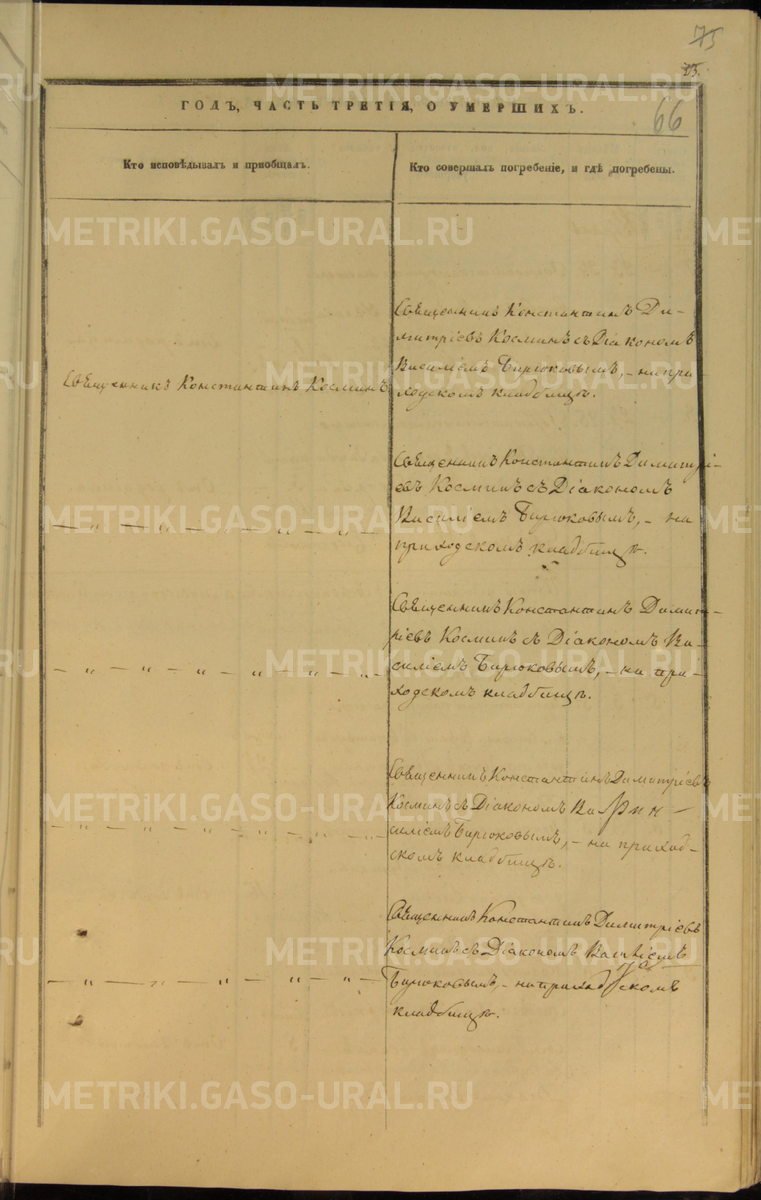 75
23.
66
ГОДЪ, ЧАСТЬ ТРЕТІЯ, О УМЕРШИХЪ.
Кто исповѣдывалъ и пріобщалъ.
Кто совершалъ погребеніе, и гдѣ погребены.
Священникъ Константинъ Косминъ
Священникъ Константинъ Ди-
митріевъ Косминъ съ Діакономъ
Василіемъ Бирюковымъ, – на при
ходскомъ кладбищѣ.
Священникъ Константинъ Димитрі-
евъ Косминъ съ Діакономъ
Василіемъ Бирюковымъ, – на
приходскомъ кладбищѣ.
— „ — „ — „ — „ — „ —
Священникъ Константинъ Димит-
ріевъ Косминъ съ Діакономъ Ва-
силіемъ Бирюковымъ, – на при-
ходскомъ кладбищѣ.
— „ — „ — „ — „ — „ —
Священникъ Константинъ Димитріевъ
Косминъ съ Діакономъ Ва
силіемъ Бирюковымъ, – на приход-
скомъ кладбищѣ.
— „ — „ — „ — „ — „ —
Священникъ Константинъ Димитріевъ
Косминъ съ Діакономъ Василіемъ
Бирюковымъ, – на приход скомъ
кладбищѣ.
— „ — „ — „ — „ — „ —
METRIKI.GASO-URAL.RU